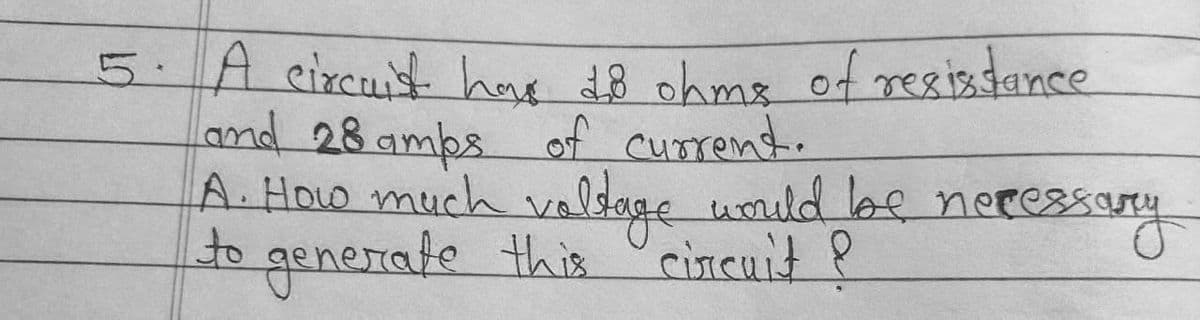 5. A circuit has 18 ohms of resistance
and 28 amps of current.
A. How much voltage would be necessary
to generate this circuit ?